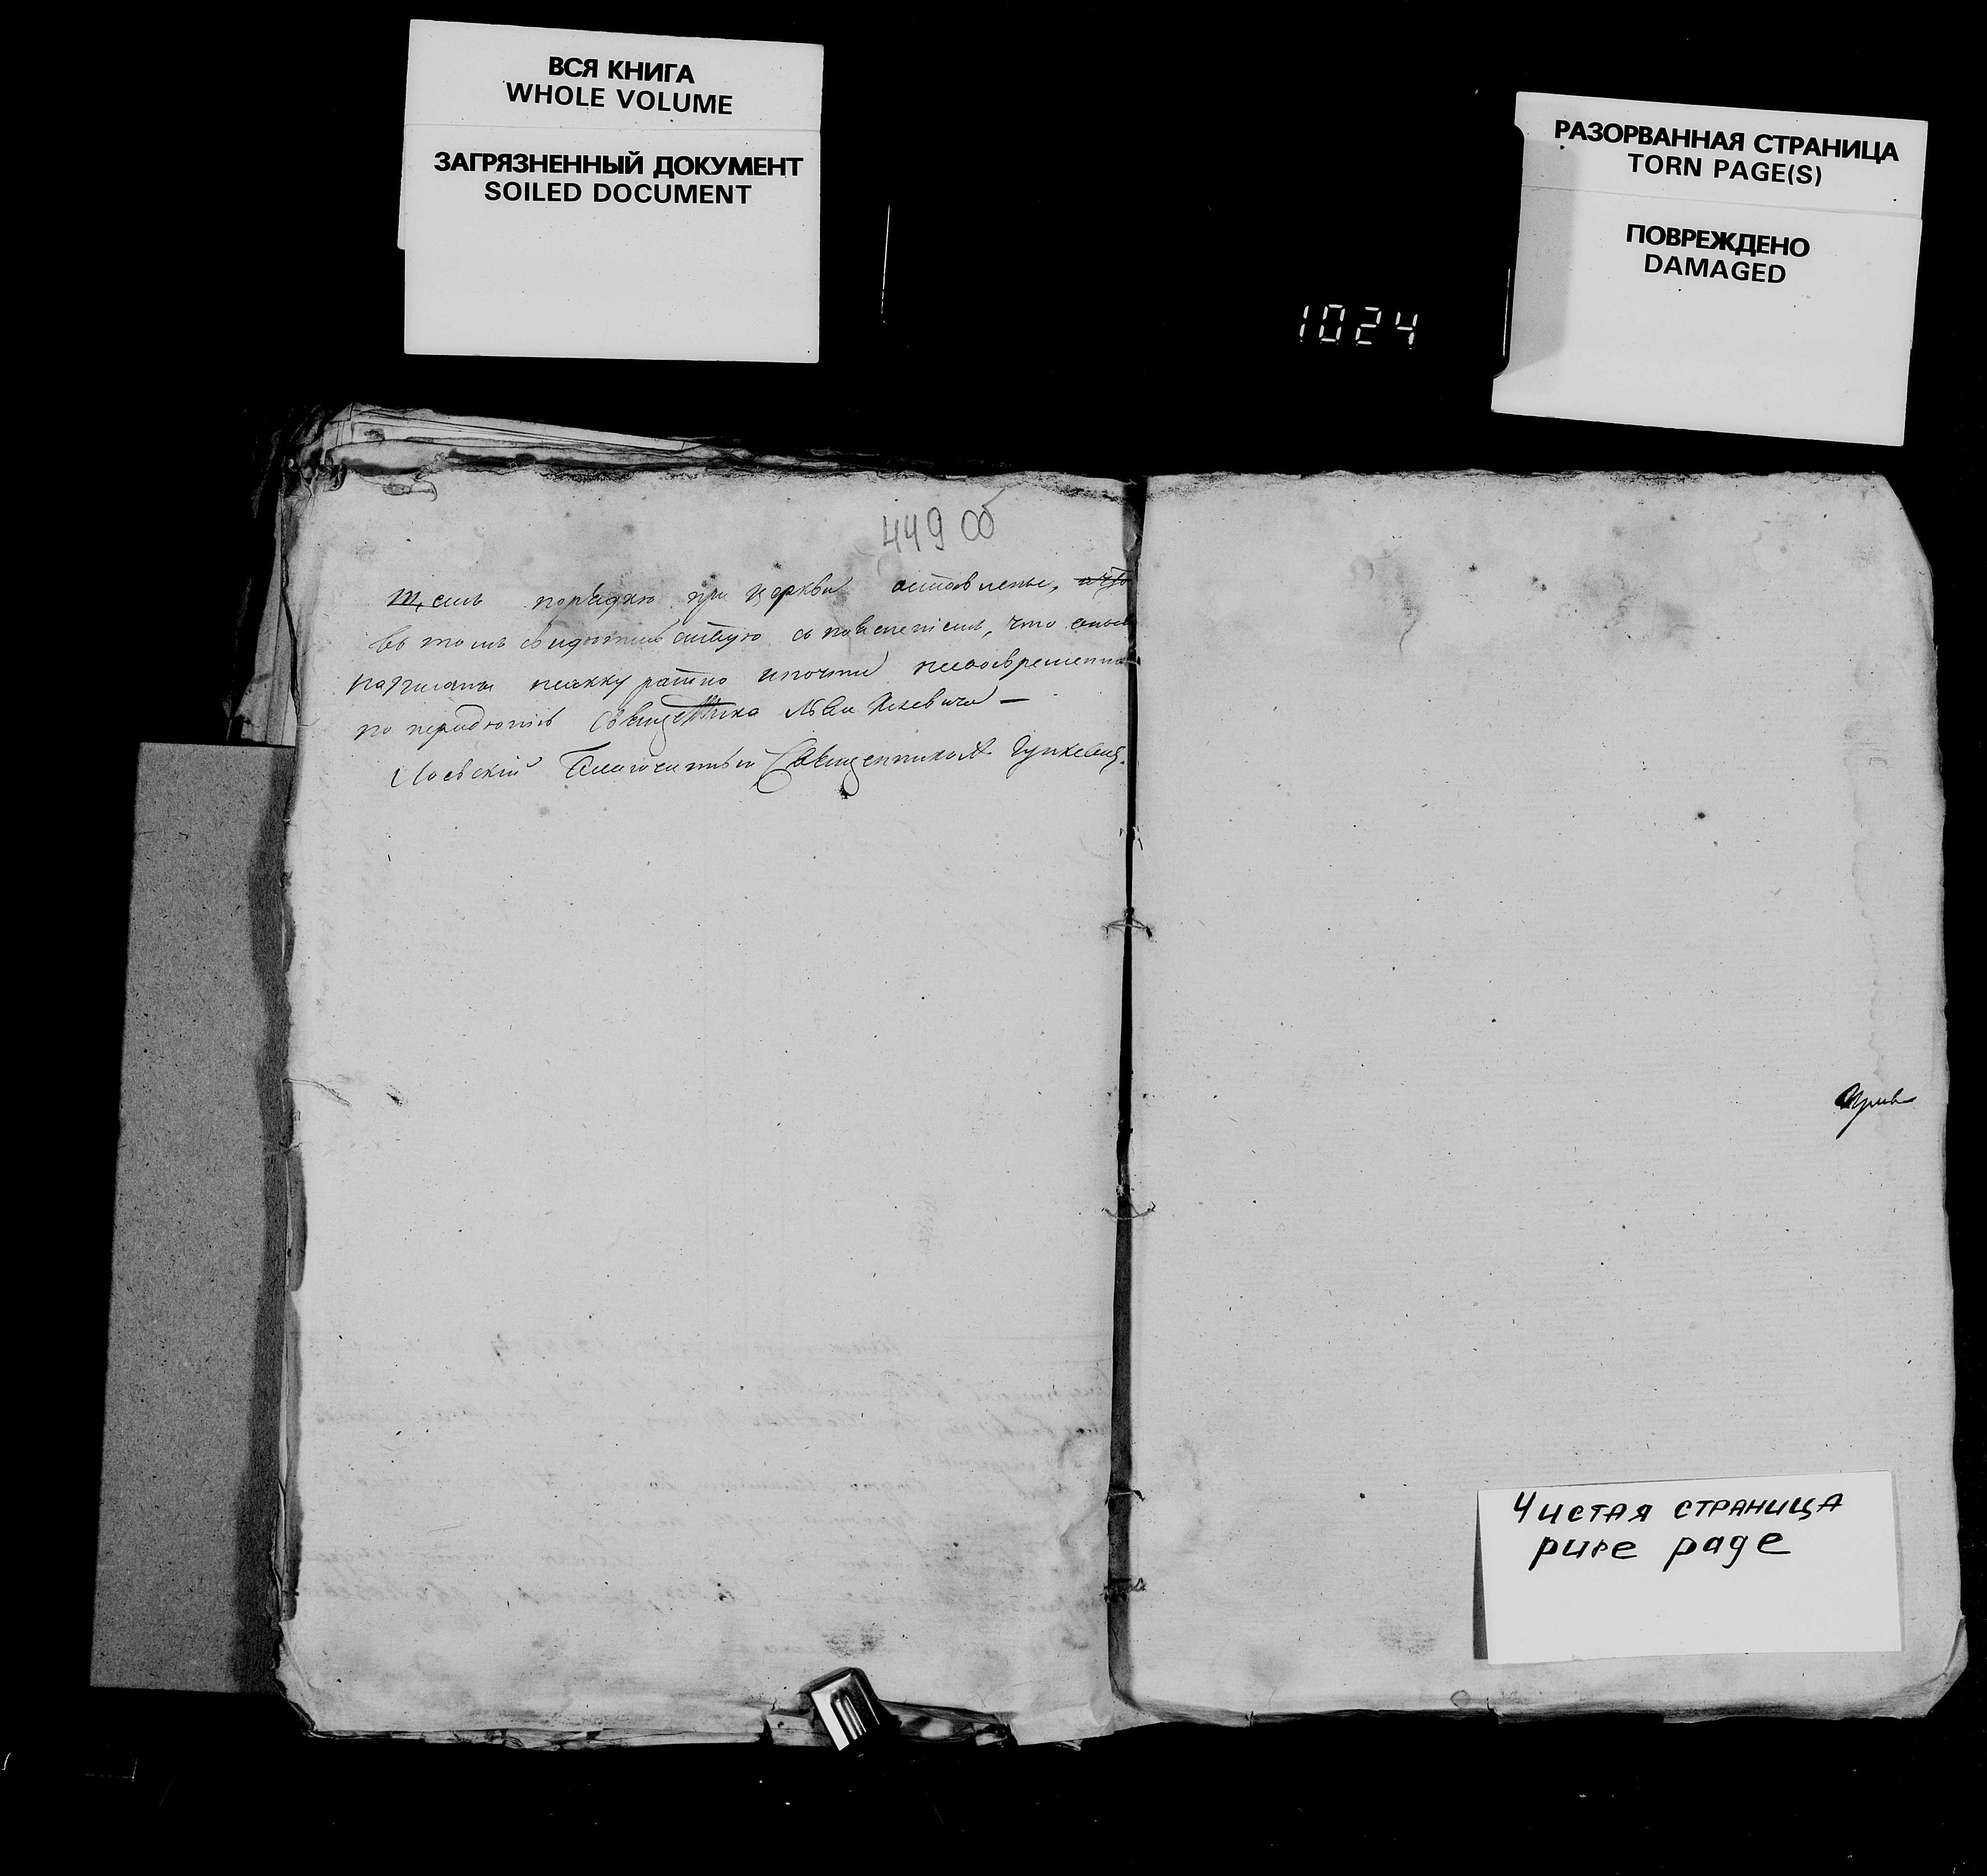 ВСЯ КНИГА
WHOLE VOLUME
ЗАГРЯЗНЕННЫЙ ДОКУМЕНТ
SOILED DOCUMENT
РАЗОРВАННАЯ СТРАНИЦА
TORN PAGE(S)
ПОВРЕЖДЕНО
DAMAGED
1024
449 об
порядкю при церкви оставлены,
въ томъ свидетельствую съ пояснениемъ, что
написаны неаккуратно и почти несвоевременно
по нерадению Священника Льва
Лоевский Благочинный Священник А.
Чистая страница
pure page